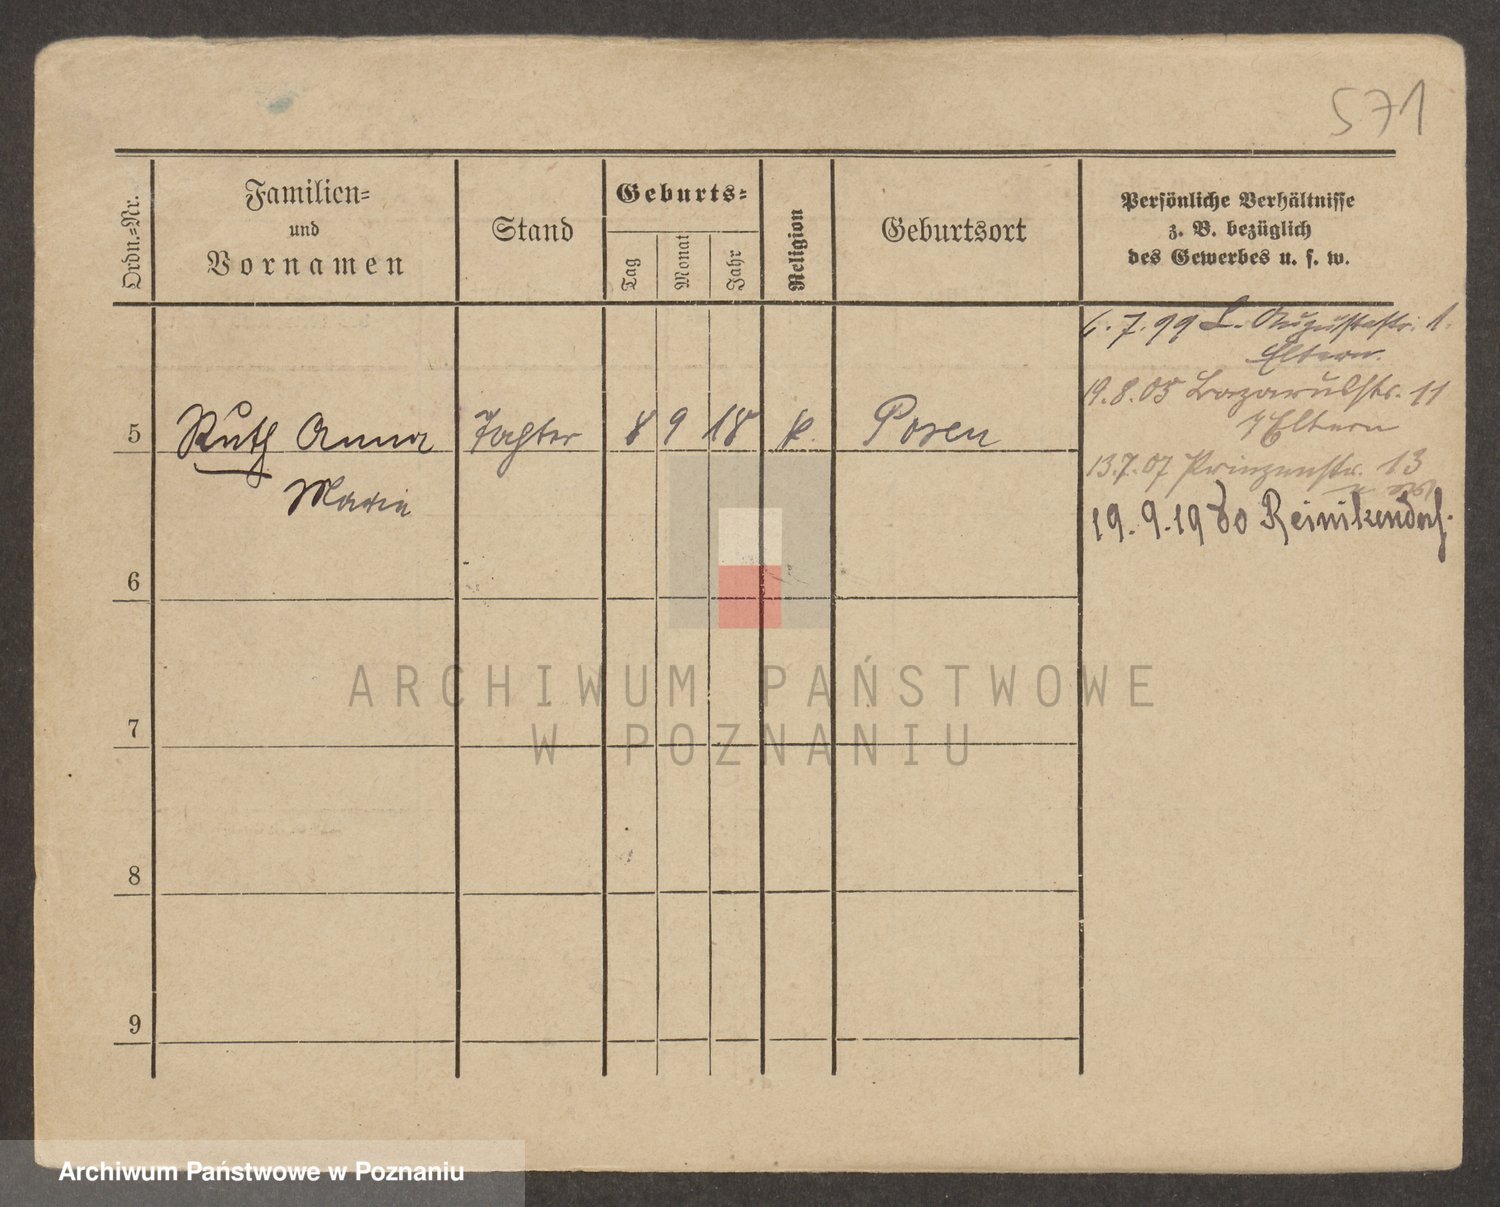 571
Ordn.=Nr.
Familien=
und
Vornamen
Stand
Geburts=
Tag
Monat
Jahr
Religion
Geburtsort
Persönliche Verhältnisse
z. B. bezüglich
des Gewerbes u. s. w.
6.7.99 L. Augustastr. 1.
Eltern.
19.8.05 Lazarusstr. 11
Eltern
13.7.07 Prinzenstr. 13
19.9.19 Reinikendorf.
5 Ruth Anna Tochter 8 9 18 k. Posen
Maria
6
7
8
9
ARCHIWUM PAŃSTWOWE
W POZNANIU
Archiwum Państwowe w Poznaniu